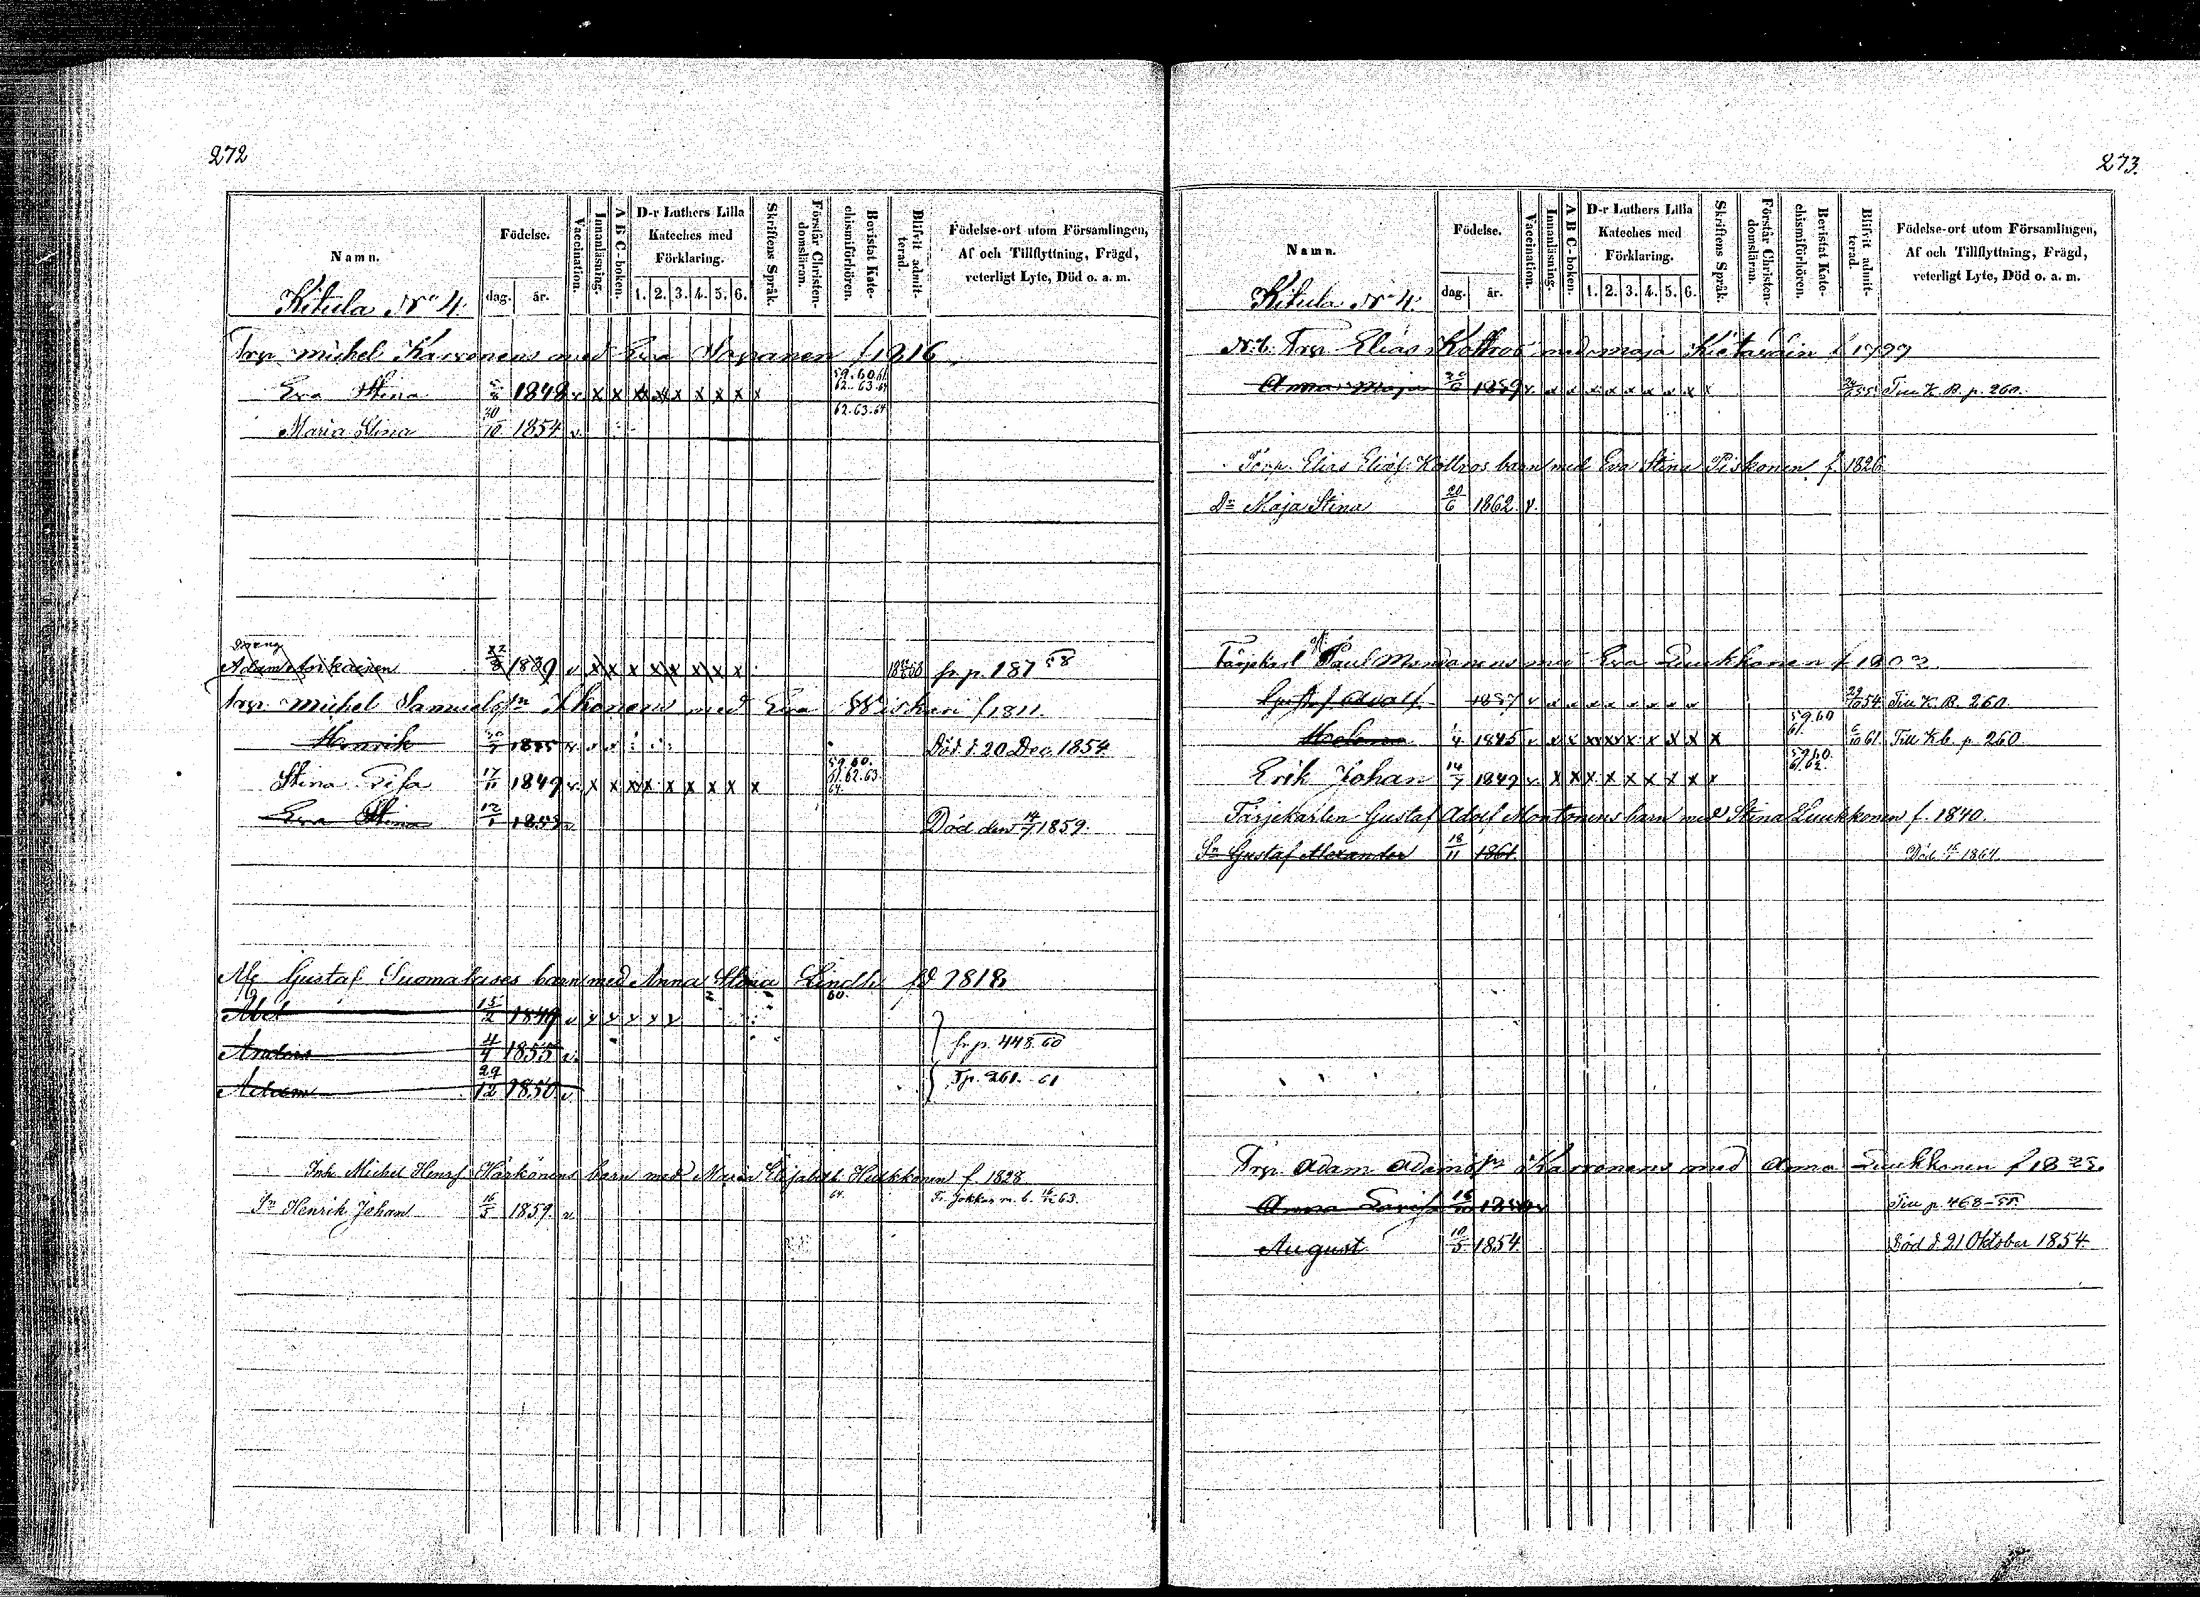 272
Namn.
Födelse.
dag. år.
Vaccination.
Innanläsning.
A B C-boken.
D-r Luthers Lilla Kateches med Förklaring.
1. 2. 3. 4. 5. 6.
Skriftens Språk.
Förstår Christendomsläran.
Bevistat Katechismiförhören.
Blifvit admitterad.
Födelse-ort utom Församlingen,
Af och Tillflyttning, Frägd,
veterligt Lyte, Död o. a. m.
Kitula No 4.
Trp. Michel Karvonens med Eva f 1816
Eva Stina 1848 v x x x x x x x x x 59.60.61 62.63.64
Maria Stina 30/10 1854 v 62.63.64
Dreng
Adam 1839 v x x x x x x x x fr p. 187 58
Trp. Michel Samuelsn Ikonens med Eva Wiskari f 1811.
Henrik 1845 v Död d. 20 Dec. 1854
Stina Lisa 17/11 1849 v x x x x x x x x x 59.60. 61.62.63. 64
Eva Stina 12/1 Död den 14/7 1859.
Gustaf Suomalaises barn med Anna Stina Lindh fd 1818
60.
Abel 15/2 1849 v v v v v v
Anders 4/4 1855 v fr p. 448 60
Adam 29/12 1850 v Tp. 261. 61
Inh. Michel Henrsf Härkönens barn med Maria Elisabeth Huukkonen f. 1828
Sn Henrik Johan 16/5 1859. v 64. Fr. Jokkas m. b. 63.
273.
Namn.
Födelse.
dag. år.
Vaccination.
Innanläsning.
A B C-boken.
D-r Luthers Lilla Kateches med Förklaring.
1. 2. 3. 4. 5. 6.
Skriftens Språk.
Förstår Christendomsläran.
Bevistat Katechismiförhören.
Blifvit admitterad.
Födelse-ort utom Församlingen,
Af och Tillflyttning, Frägd,
veterligt Lyte, Död o. a. m.
Kitula No 4.
Trp. Elias Koltros med Maja f 1797
Anna Maja 1839 v x x x x x x x x x 55. Till K. B. p. 260.
Torp. Elias Eliasf. Koltros barn med Eva Stina Piskonen f. 1826
Dr Maja Stina 20/6 1862. v.
Färjekarl Paul Montonens med Eva Luukkonen f 1802
Gustaf Adolf 1837 v x x x x x x x x 29/10 54 Till K. B. 260.
Helena 1/4 1845 v x x x x x x x x x 59.60 61. 10 61. Till Kb. p. 260
Erik Johan 14/7 1849 v x x x x x x x x x 59.60. 61.62.
Färjekarlen Gustaf Adolf Montonens barn med Stina Luukkonen f. 1840.
Sn Gustaf Alexander 18/11 1861 Död 1864.
Trp. Adam Adamsn Karvonens med Anna Luukkonen f
Anna Lovisa Till p. 468-55.
August 10/5 1854. Död d. 21 Oktober 1854